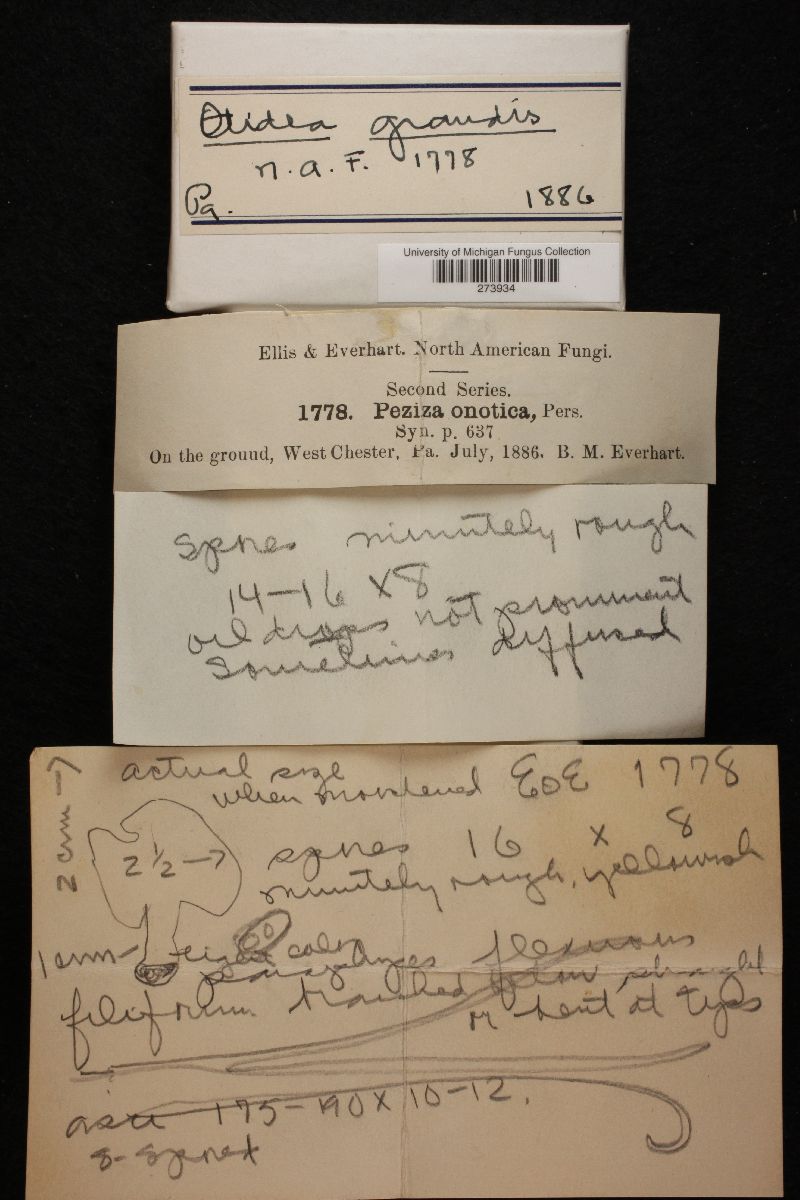 Otidea grandis
N. A. F. 1778
Pa. 1886
University of Michigan Fungus Collection
273934
Ellis & Everhart. North American Fungi.
Second Series.
1778. Peziza onotica, Pers.
Syn. p. 637
On the ground, West Chester, Pa. July, 1886. B. M. Everhart.
Spores minutely rough
14-16 x 8
oil drops not prominent
Sometimes diffused
actual size
when moistened E & E 1778
2 cm →
2 1/2 →
spores 16 x 8
minutely rough, yellowish
1 cm color
paraphyses flexuous
filiform branched below straight
or bent at tips
asci 175-190 x 10-12.
8-spored